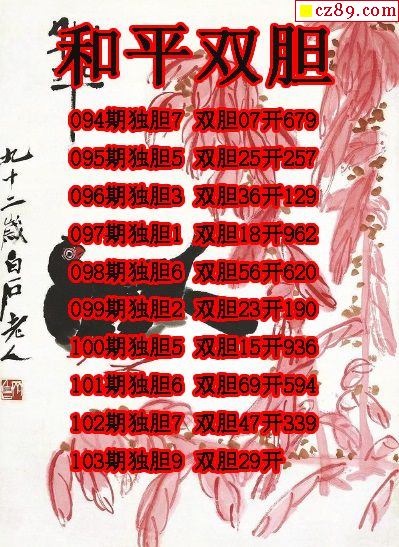 cz89.com
和平双胆
094期独胆7 双胆07开679
095期独胆5 双胆25开257
096期独胆3 双胆36开129
097期独胆1 双胆18开962
098期独胆6 双胆56开620
099期独胆2 双胆23开190
100期独胆5 双胆15开936
101期独胆6 双胆69开594
102期独胆7 双胆47开339
103期独胆9 双胆29开
九十二歲白石老人